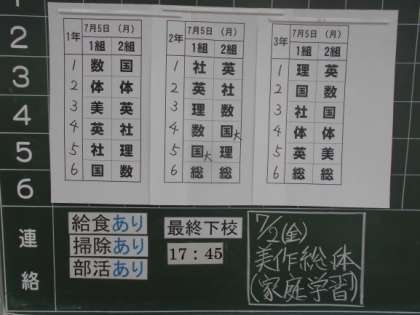 1
2
3
4
5
6
連絡
1年 7月5日 (月)
1組 2組
1 数 国
2 体 体
3 美 英
4 英 社
5 社 理
6 国 数
2年 7月5日 (月)
1組 2組
1 社 英
2 英 社
3 理 数
4 数 国大
5 国大 理
6 総 総
3年 7月5日 (月)
1組 2組
1 理 英
2 英 数
3 社 国
4 体 体
5 英 美
6 国 社
給食あり
掃除あり
部活あり
最終下校
17:45
7/2(金)
美作総体
(家庭学習)